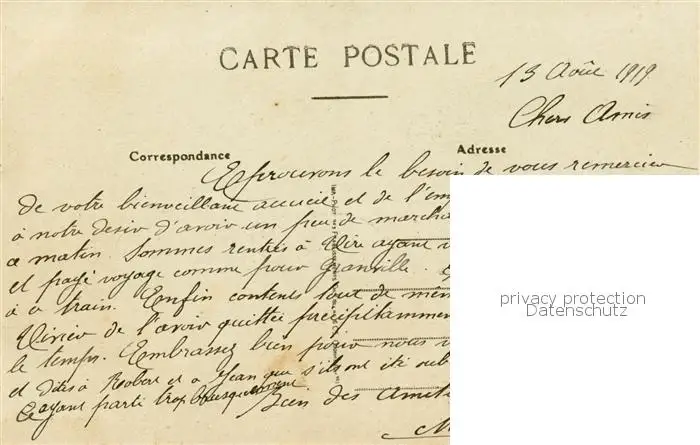 CARTE POSTALE
13 Août 1919
Chers Amis
Correspondance
Adresse
Eprouvons le besoin de vous remercier
de votre bienveillant accueil et de l'em
à notre désir d'avoir un peu de marcha
ce matin. Sommes rentrés à Vire ayant
et payé voyage comme pour Granville.
à ce train. Enfin contents tout de mêm
de l'avoir quittée précipitammen
le temps. Embrassez bien pour nous
et dites à Robert et à Jean que s'ils ont été oub
ayant parti trop brusquement. Bien des amit
privacy protection
Datenschutz